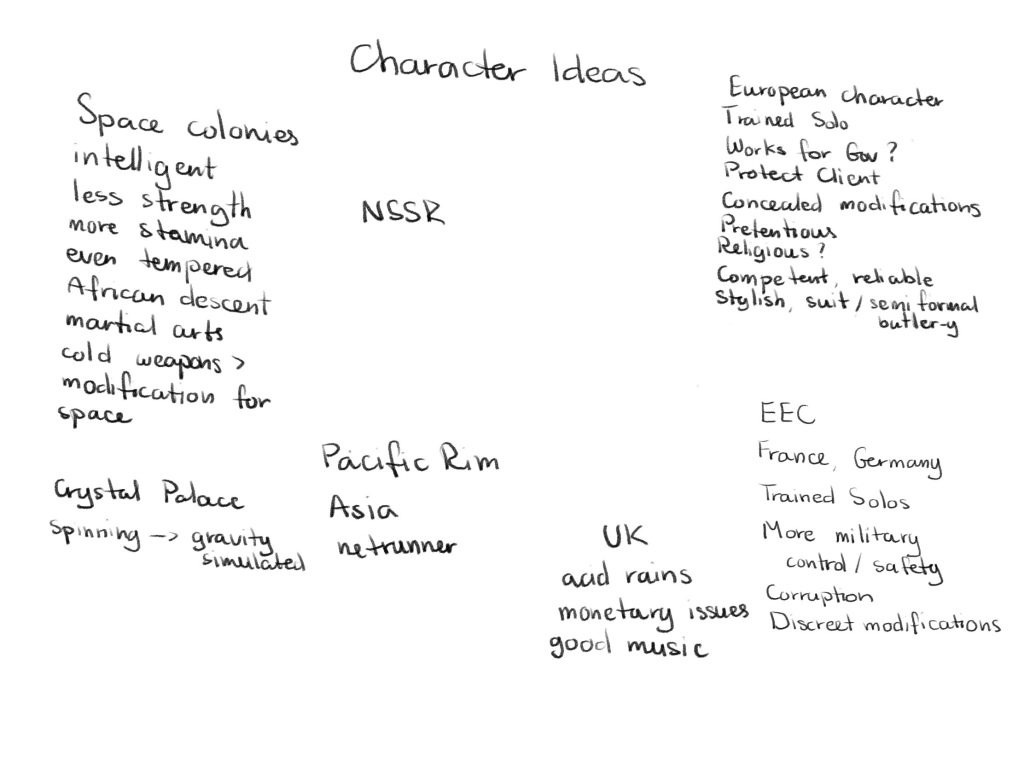 Character Ideas
Space colonies
intelligent
less strength
more stamina
even tempered
African descent
martial arts
cold weapons >
modification for
space
Crystal Palace
Spinning -> gravity
simulated
NSSR
Pacific Rim
Asia
netrunner
UK
acid rains
monetary issues
good music
European character
Trained Solo
Works for Gov?
Protect Client
Concealed modifications
Pretentious
Religious?
Competent, reliable
Stylish, suit/semi formal
butler-y
EEC
France, Germany
Trained Solos
More military
control/safety
Corruption
Discreet modifications